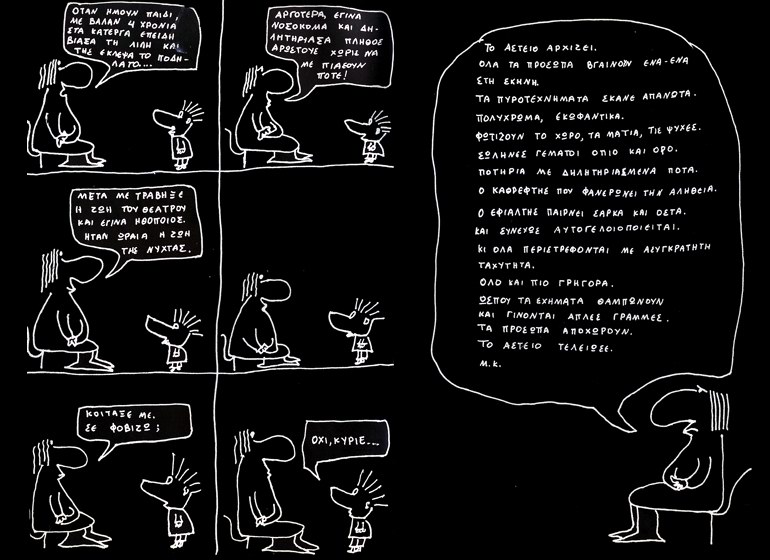 ΟΤΑΝ ΗΜΟΥΝ ΠΑΙΔΙ,
ΜΕ ΒΑΛΑΝ 4 ΧΡΟΝΙΑ
ΣΤΑ ΚΑΤΕΡΓΑ ΕΠΕΙΔΗ
ΒΙΑΣΑ ΤΗ ΛΙΛΗ ΚΑΙ
ΤΗΣ ΕΚΛΕΨΑ ΤΟ ΠΟΔΗ-
ΛΑΤΟ....
ΑΡΓΟΤΕΡΑ, ΕΓΙΝΑ
ΝΟΣΟΚΟΜΑ ΚΑΙ ΔΗ-
ΛΗΤΗΡΙΑΣΑ ΠΛΗΘΟΣ
ΑΡΩΣΤΟΥΣ ΧΩΡΙΣ ΝΑ
ΜΕ ΠΙΑΣΟΥΝ
ΠΟΤΕ!
ΜΕΤΑ ΜΕ ΤΡΑΒΗΞΕ
Η ΖΩΗ ΤΟΥ ΘΕΑΤΡΟΥ
ΚΑΙ ΕΓΙΝΑ ΗΘΟΠΟΙΟΣ.
ΗΤΑΝ ΩΡΑΙΑ Η ΖΩΗ
ΤΗΣ ΝΥΧΤΑΣ.
ΚΟΙΤΑΞΕ ΜΕ.
ΣΕ ΦΟΒΙΖΩ;
ΟΧΙ, ΚΥΡΙΕ....
ΤΟ ΑΣΤΕΙΟ ΑΡΧΙΖΕΙ.
ΟΛΑ ΤΑ ΠΡΟΣΩΠΑ ΒΓΑΙΝΟΥΝ ΕΝΑ-ΕΝΑ
ΣΤΗ ΣΚΗΝΗ.
ΤΑ ΠΥΡΟΤΕΧΝΗΜΑΤΑ ΣΚΑΝΕ ΑΠΑΝΩΤΑ.
ΠΟΛΥΧΡΩΜΑ, ΕΚΩΦΑΝΤΙΚΑ.
ΦΩΤΙΖΟΥΝ ΤΟ ΧΩΡΟ, ΤΑ ΜΑΤΙΑ, ΤΙΣ ΨΥΧΕΣ.
ΣΩΛΗΝΕΣ ΓΕΜΑΤΟΙ ΟΠΙΟ ΚΑΙ ΟΡΟ.
ΠΟΤΗΡΙΑ ΜΕ ΔΗΛΗΤΗΡΙΑΣΜΕΝΑ ΠΟΤΑ.
Ο ΚΑΘΡΕΦΤΗΣ ΠΟΥ ΦΑΝΕΡΩΝΕΙ ΤΗΝ ΑΛΗΘΕΙΑ.
Ο ΕΦΙΑΛΤΗΣ ΠΑΙΡΝΕΙ ΣΑΡΚΑ ΚΑΙ ΟΣΤΑ.
ΚΑΙ ΣΥΝΕΧΩΣ ΑΥΤΟΓΕΛΟΙΟΠΟΙΕΙΤΑΙ.
ΚΙ ΟΛΑ ΠΕΡΙΣΤΡΕΦΟΝΤΑΙ ΜΕ ΑΣΥΓΚΡΑΤΗΤΗ
ΤΑΧΥΤΗΤΑ.
ΟΛΟ ΚΑΙ ΠΙΟ ΓΡΗΓΟΡΑ.
ΩΣΠΟΥ ΤΑ ΣΧΗΜΑΤΑ ΘΑΜΠΩΝΟΥΝ
ΚΑΙ ΓΙΝΟΝΤΑΙ ΑΠΛΕΣ ΓΡΑΜΜΕΣ.
ΤΑ ΠΡΟΣΩΠΑ ΑΠΟΧΩΡΟΥΝ.
ΤΟ ΑΣΤΕΙΟ ΤΕΛΕΙΩΣΕ.
Μ.Κ.